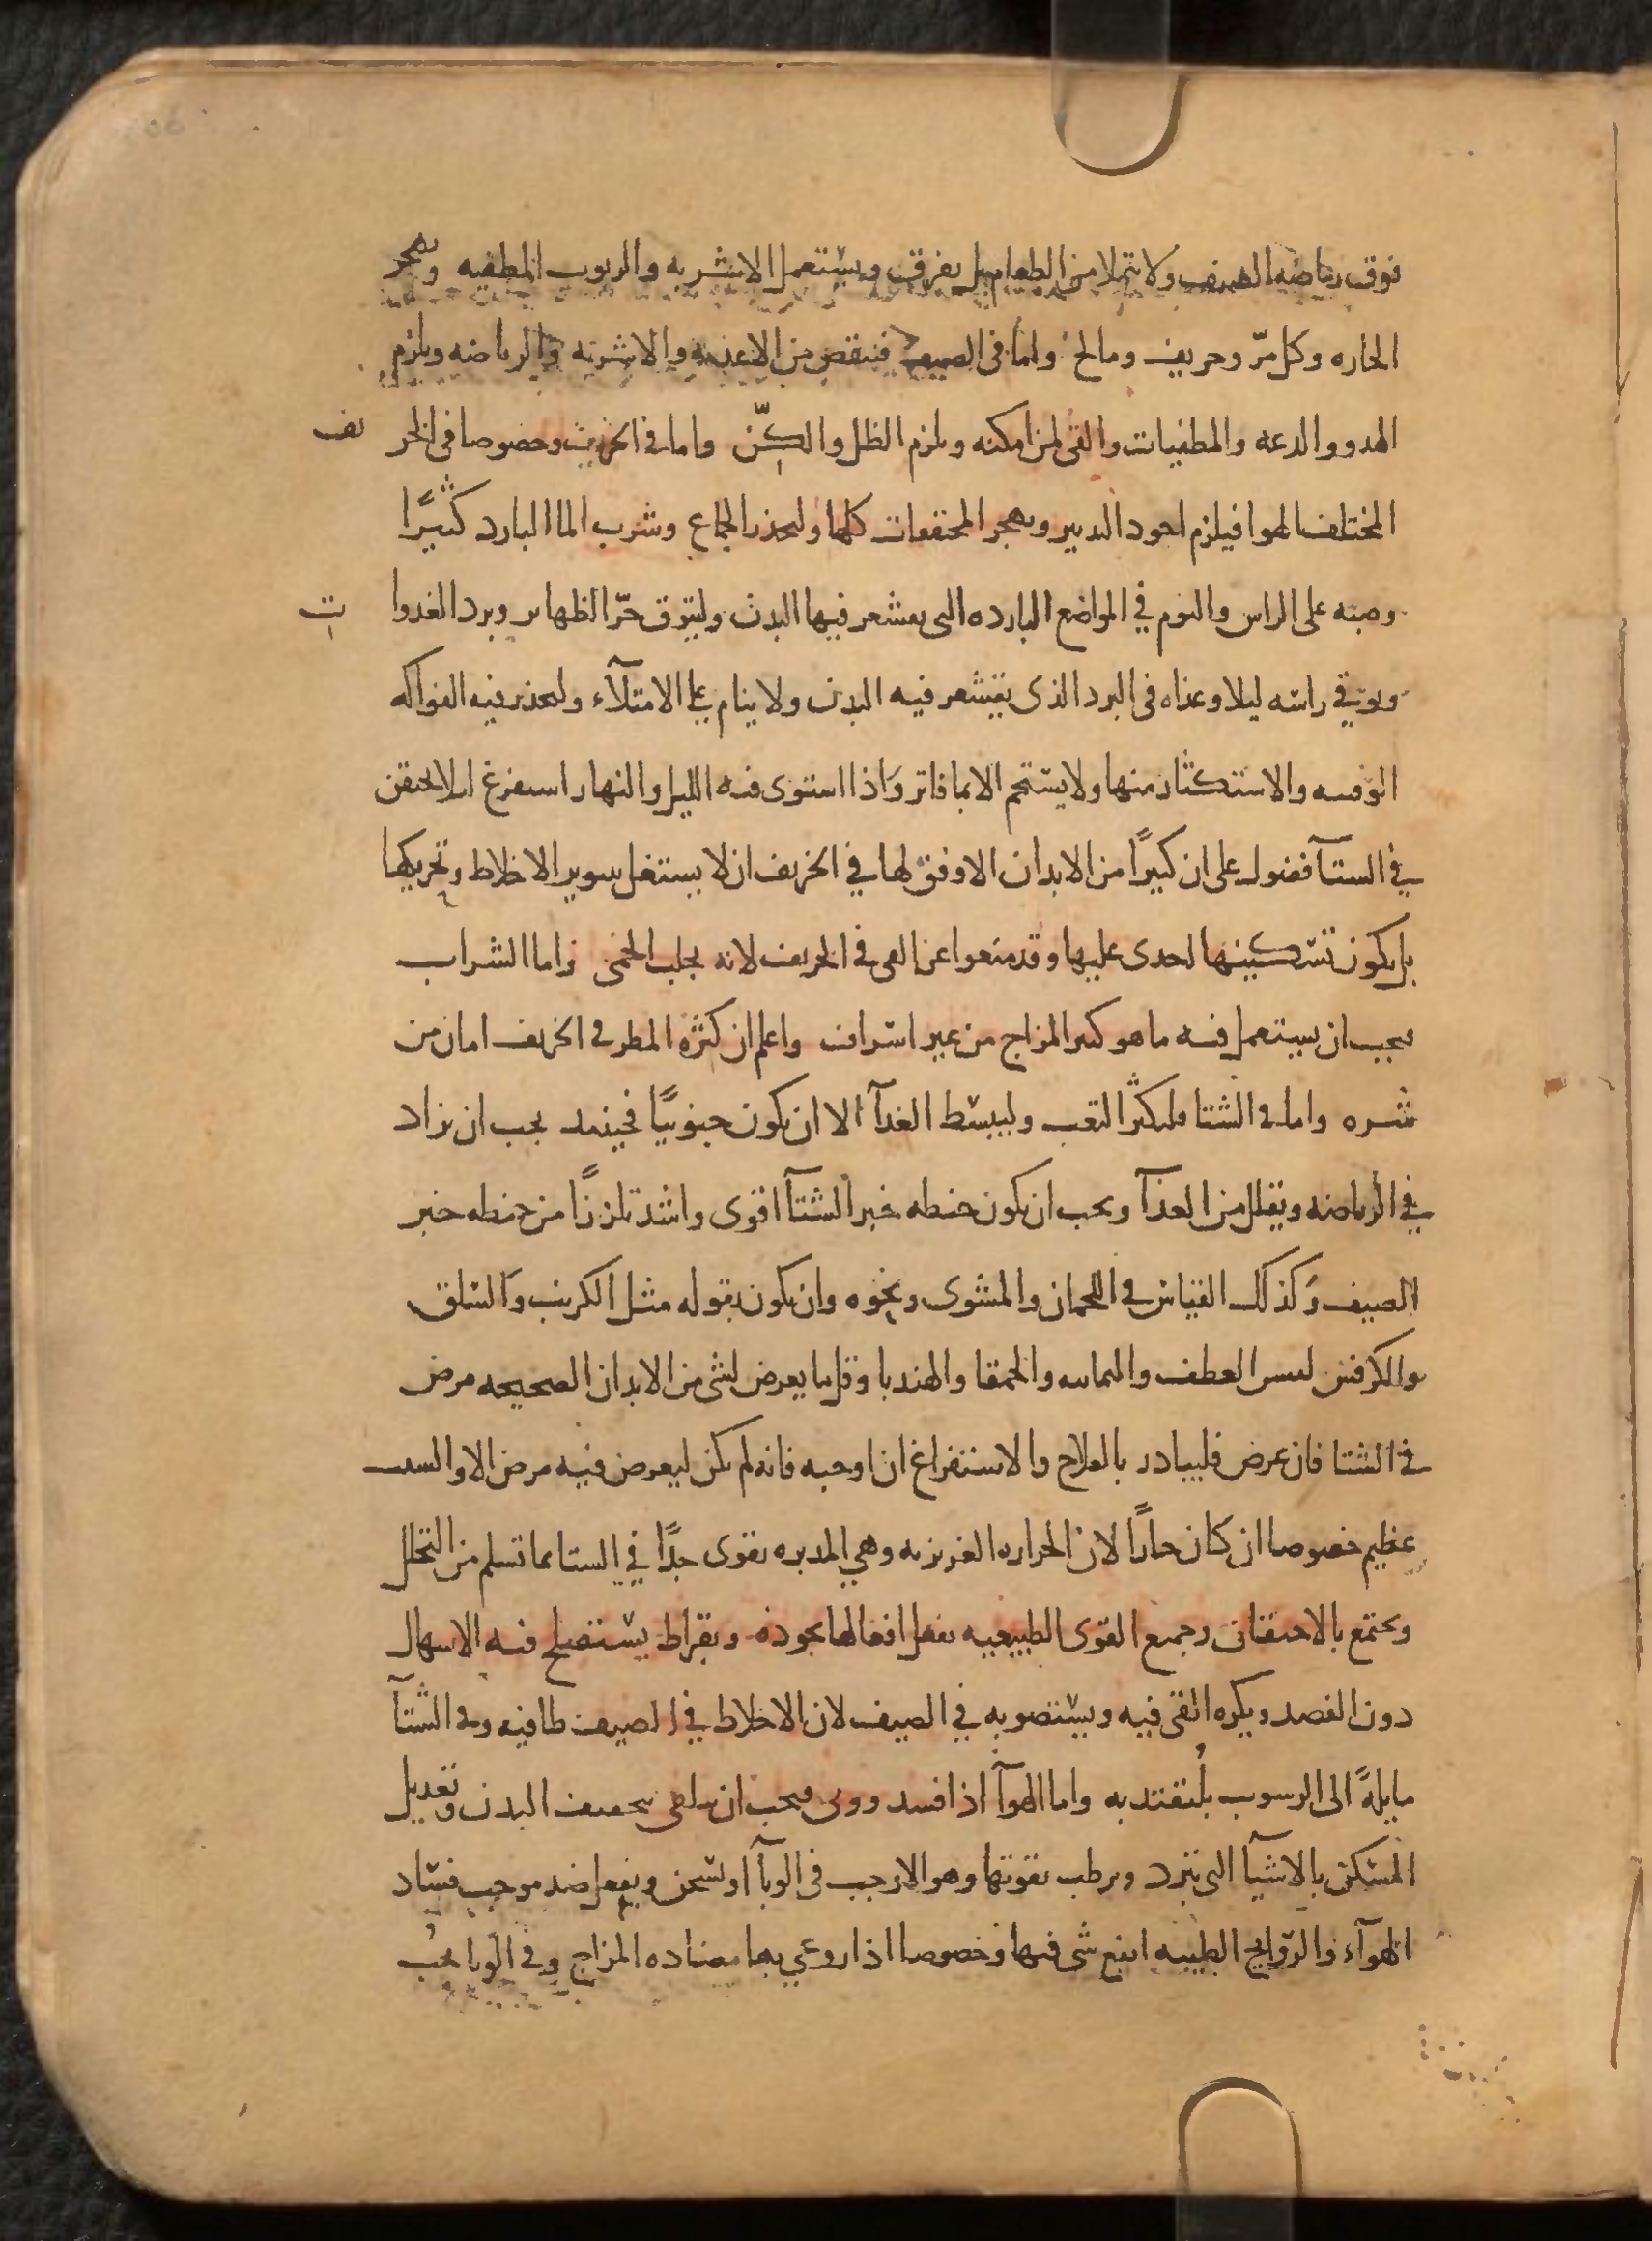 فوق رياضه الصيف ولا يتملا من الطعام بل يفرق ويستعمل الاشربه والربوب المطفيه ويهجر
الحاره وكل مرّ وحريف ومالح واما في الصيف فينقص من الاغذيه والاشربه والرياضه ويلزم
الهدو والدعه والمطفيات والقى لمن امكنه ويلزم الظل والكنّ واما في الخريف وخصوصا في الخريف
المختلف الهوا فيلزم اجود التدبير ويهجر المجففات كلها وليحذر الجماع وشرب الما البارد كثيرًا
وصبه على الراس والنوم في المواضع البارده التى يقشعر فيها البدن وليتوق حرّ الظهاير وبرد الغدوات
ويوقي راسه ليلا وغداه في البرد الذى يقشعر فيه البدن ولا ينام على الامتلآء وليحذر فيه الفواكه
الوقتيه والاستكثار منها ولا يستحم الا بما فاتر واذا استوى فيه الليل والنهار استفرغ ليلا يحتقن
في الشتآ فضول على ان كثيرًا من الابدان الاوفق لها في الخريف ان لا يشتغل بتوير الاخلاط وتحريكها
بل يكون تسكينها اجدى عليها وقد منعوا عن القى في الخريف لانه يجلب الحمى واما الشراب
فيجب ان يستعمل فيه ما هو كثير المزاج من غير اسراف واعلم ان كثره المطر في الخريف امان من
شره واما في الشتا فليكثر التعب وليبسط الغدآ الا ان يكون جنوبيًا فحينيد يجب ان يزاد
في الرياضه ويقلل من الغدآ ويجب ان يكون حنطه خبز الشتآ اقوى واشد تلززًا من حنطه خبز
الصيف وكذلك القياس في اللحمان والمشوى ونحوه وان يكون بقوله مثل الكرنب والسلق
والكرفس ليس القطف واليمانيه والحمقا والهندبا وقل ما يعرض لشى من الابدان الصحيحه مرض
في الشتا فان عرض فليبادر بالعلاج والاستفراغ ان اوجبه فانه لم يكن ليعرض فيه مرض الا والسبب
عظيم خصوصا ان كان حارًا لان الحراره الغريزيه وهي المدبره تقوى جدًا في الشتا بما تسلم من التحلل
ويجتمع بالاحتقان وجميع القوى الطبيعيه تفعل افعالها بجوده وبقراط يستصلح فيه الاسهال
دون الفصد ويكره القى فيه ويستصوبه في الصيف لان الاخلاط في الصيف طافيه وفي الشتآ
مايلةً الى الرسوب فليقتد به واما الهوآ اذا فسد ووبى فيجب ان يتلقى بتجفيف البدن وتعديل
المسكن بالاشيآ التى تبرد وترطب بقوتها وهو الاوجب في الوبآ او تسخن وتفعل ضد موجب فساد
الهوآء والروايح الطيبه انفع شى فيها وخصوصا اذا روعي بها مضاده المزاج وفي الوبا يجب